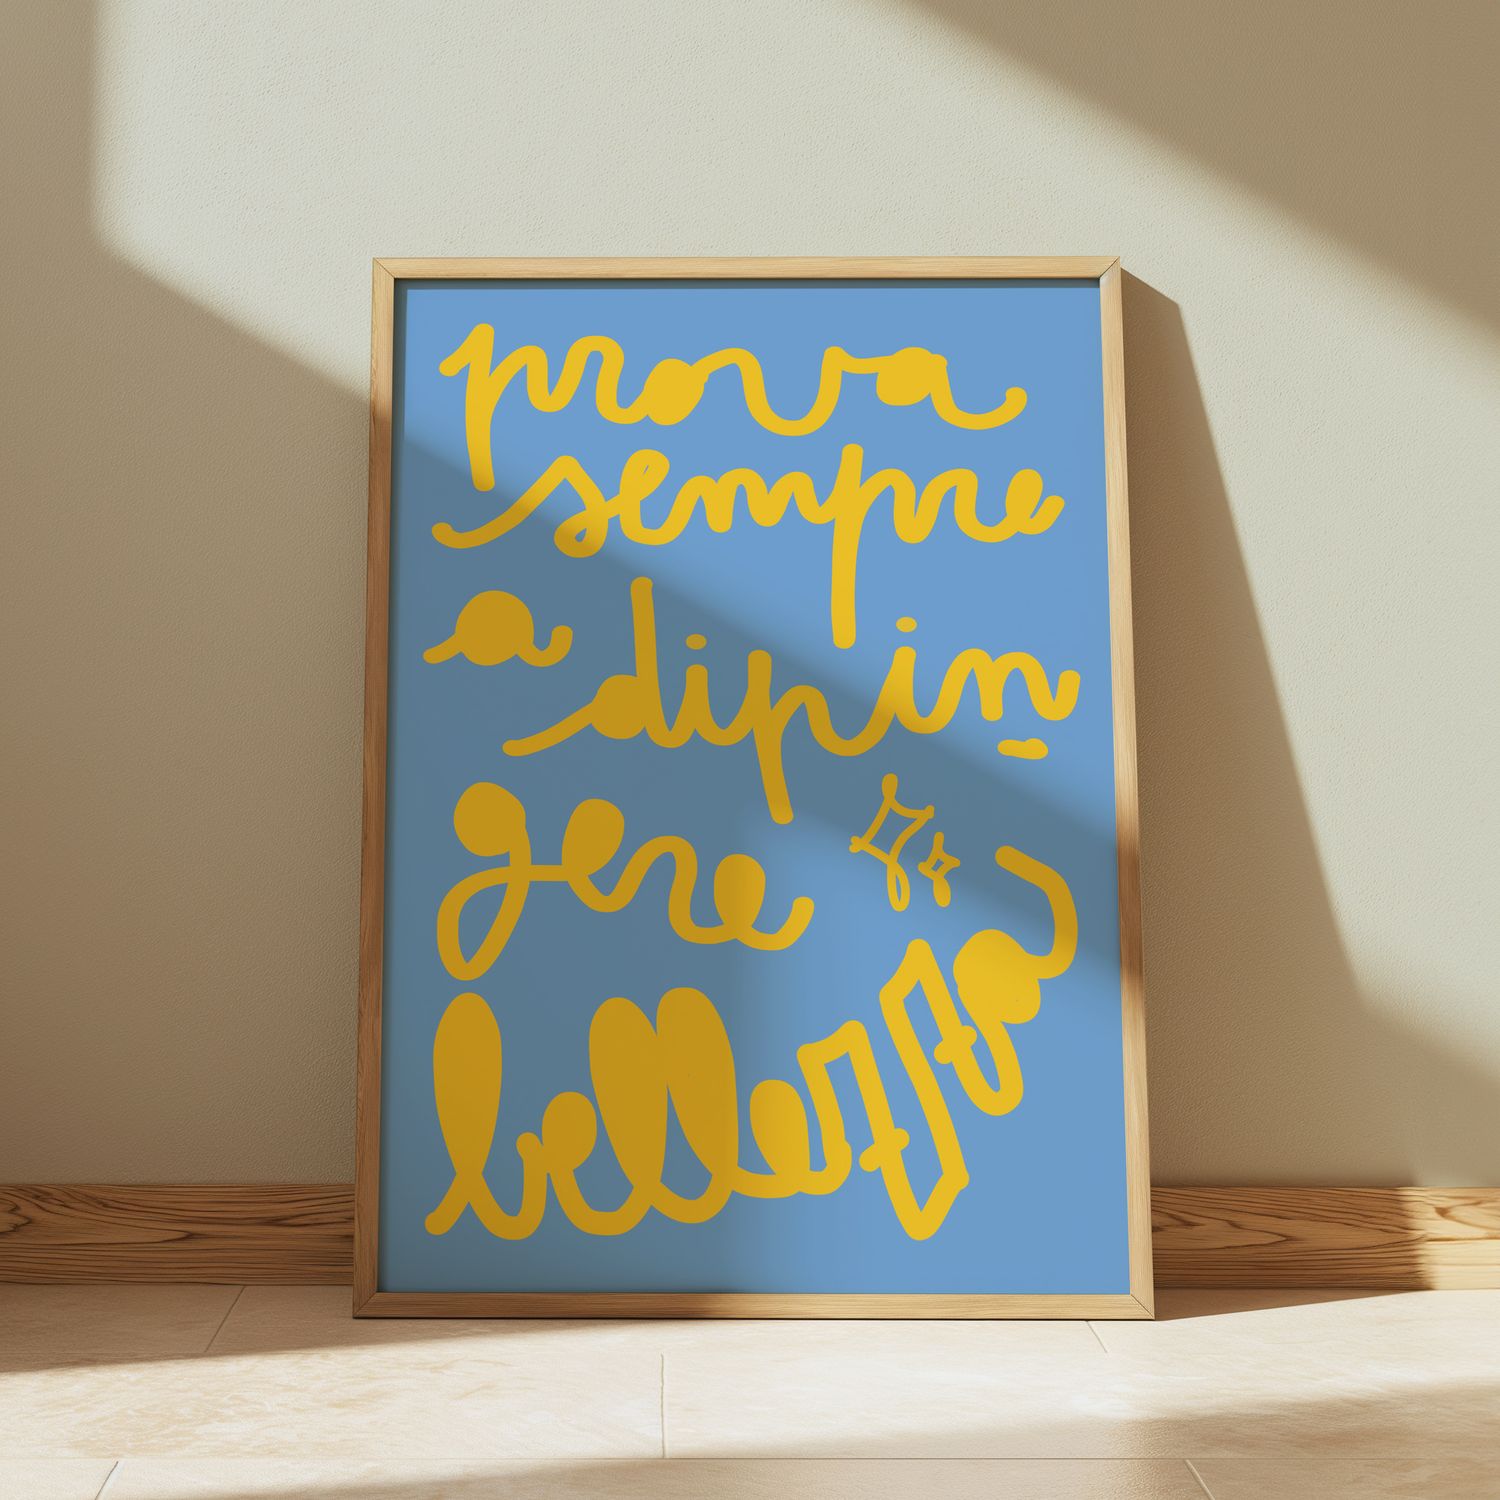 prova
sempre
a dipin-
gere
bellezza